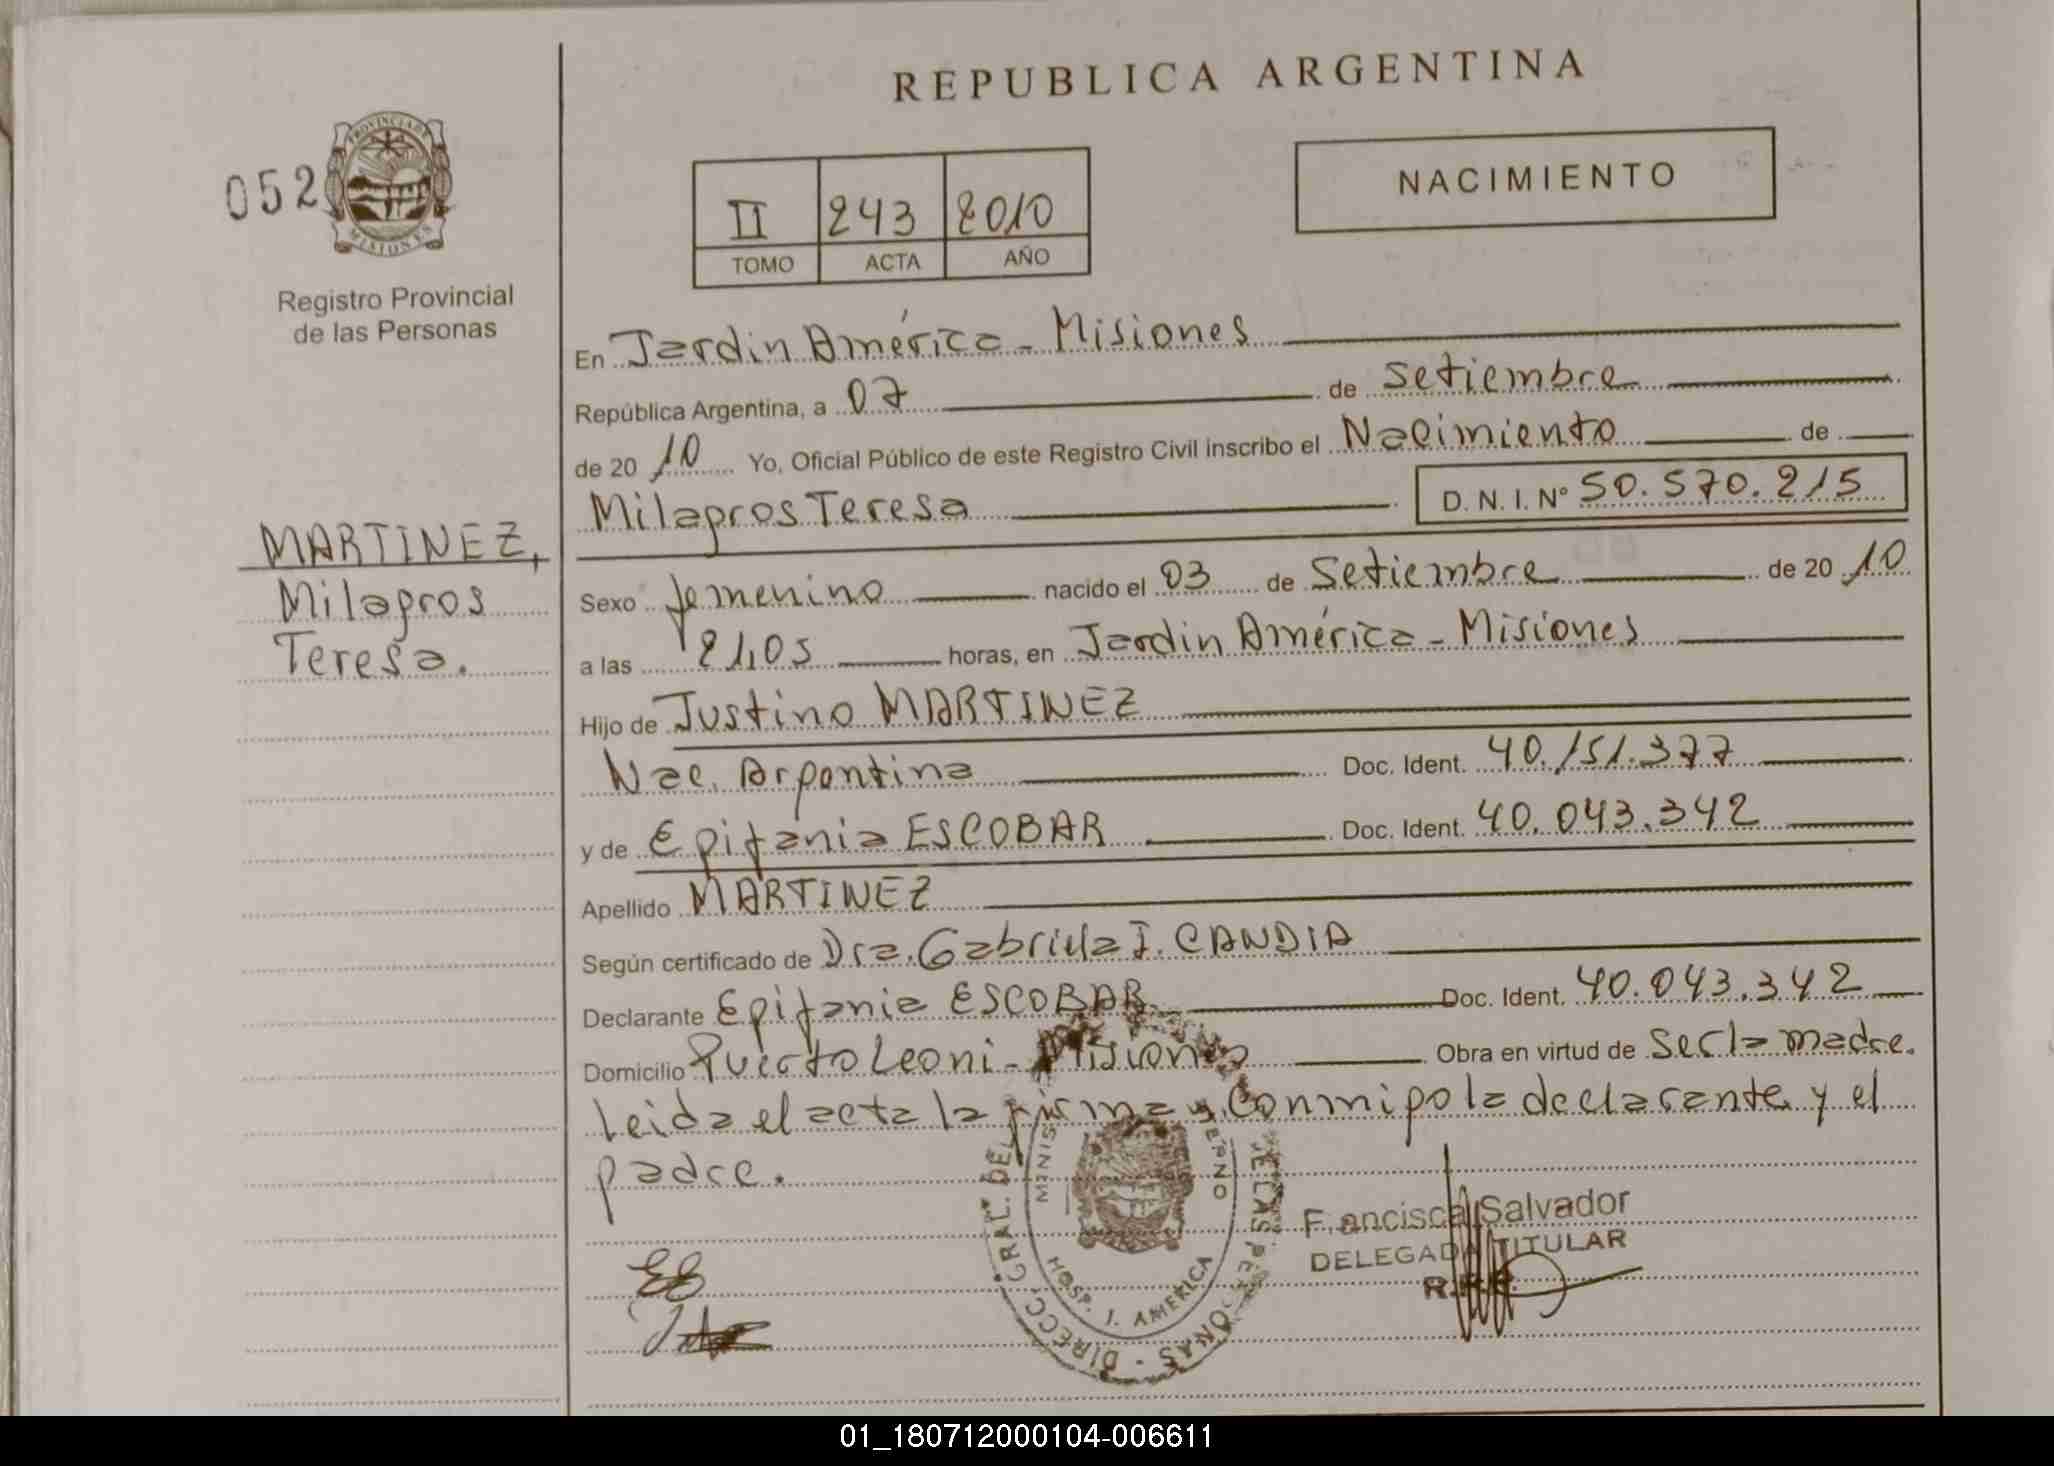 REPUBLICA ARGENTINA
052
PROVINCIA DE
MISIONES
Registro Provincial
de las Personas
II 243 2010
TOMO ACTA AÑO
NACIMIENTO
En Jardin América - Misiones
República Argentina, a 07 de Setiembre
de 20 10 Yo, Oficial Público de este Registro Civil inscribo el Nacimiento de
Milagros Teresa D. N. I. Nº 50.570.215
MARTINEZ,
Milagros
Teresa.
Sexo femenino nacido el 03 de Setiembre de 20 10
a las 21,05 horas, en Jardin América - Misiones
Hijo de Justino MARTINEZ
Nac. Argentina Doc. Ident. 40.151.377
y de Epifania ESCOBAR Doc. Ident. 40.043.342
Apellido MARTINEZ
Según certificado de Dra. Gabriela I. CANDIA
Declarante Epifania ESCOBAR Doc. Ident. 40.043.342
Domicilio Puerto Leoni - Misiones Obra en virtud de Ser la madre.
Leida el acta la firma conmigo la declarante y el
padre.
DIRECC. GRAL. DEL DE LAS PERSONAS
HOSP. J. AMERICA
Francisca Salvador
DELEGADA TITULAR
R.P.P.
01_180712000104-006611